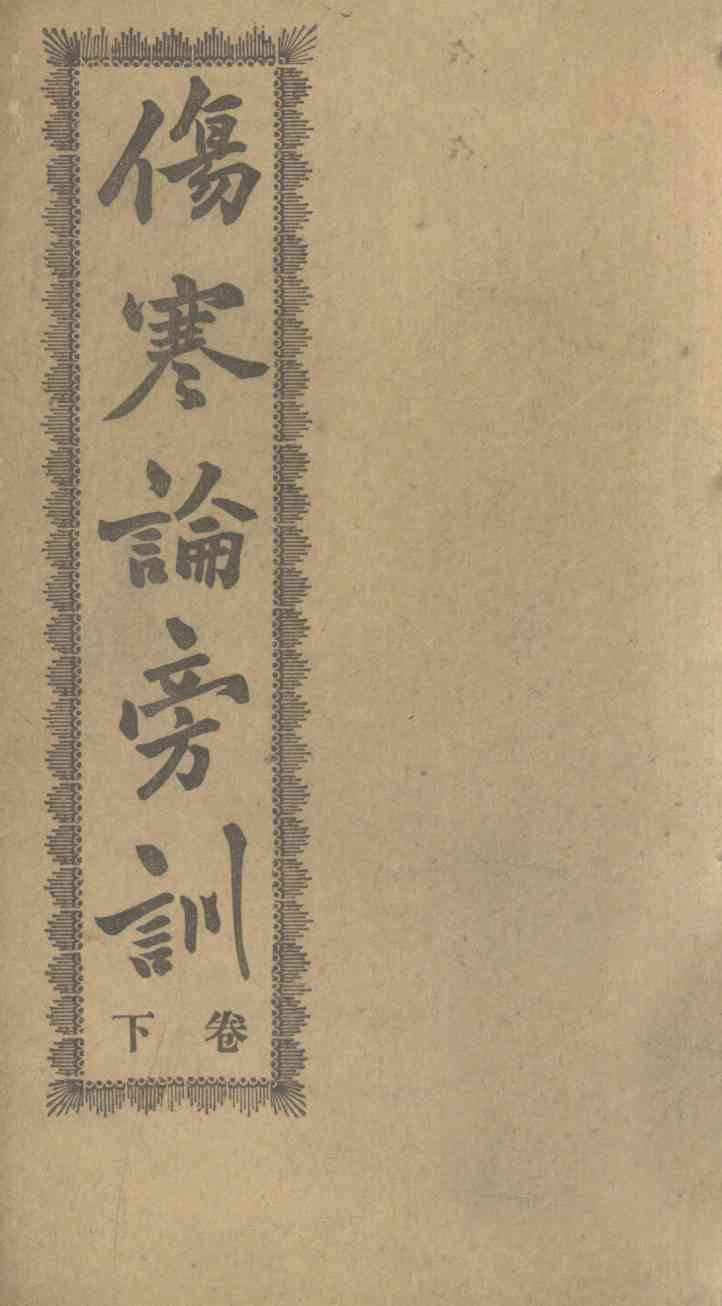 傷寒論旁訓
卷下